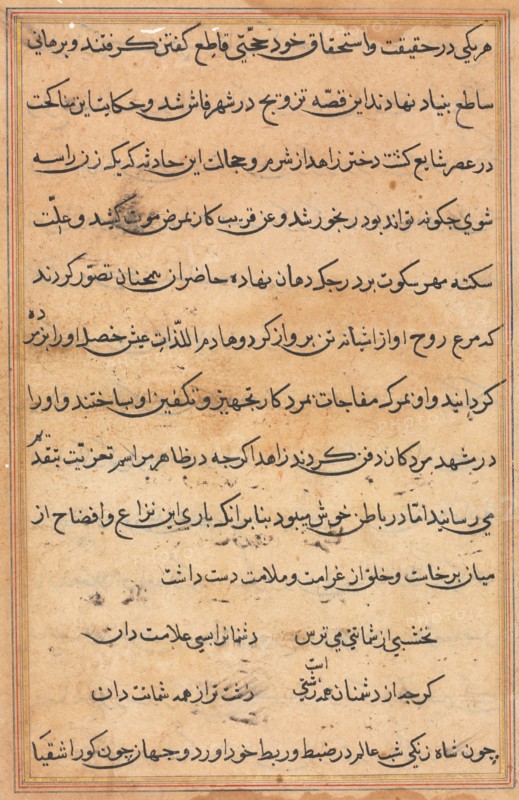 هر یکی در حقیقت و استحقاق خود حجتی قاطع گفتن کرفتند و برهانی
ساطع بنیاد نهادند این قصّه تزویج در شهر فاش شد و حکایت این مناکحت
در عصر شایع کشت دختر زاهد از شرم و خجالت این حادثه که یک زن را سه
شوی چکونه تواند بود رنجور شد و عن قریب کار بمرض موت کشید و علّت
سکته مهر سکوت بر درجک دهان نهاده حاضران همچنان تصوّر کردند
که مرغ روح او از اشیانه تن پرواز کرد و هادم اللذّات عیش خصل او را بزمرده
کردانید و او بمرک مفاجات بمرد کار تجهیز و تکفین او بساختند و او را
در مشهد مردکان دفن کردند زاهد اکرچه در ظاهر مراسم تعزیّت بتقدیم
می رسانید امّا در باطن خوش میبود بنابر انکه باری این نزاع و افضاح از
میان برخاست و خلق از غرامت و ملامت دست داشت
نخشبی از شماتتی می ترس دشمنا را سی علامت دان
کرچه از دشمنان همه زشتی است زشت تر از همه شماتت دان
چون شاه زنکی شب عالم در ضبط و ربط خود اورد و جهان چون کور اشقیا